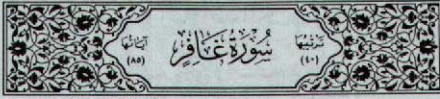 ترتيبها
(٤٠)
سُورَةُ غَافِرٍ
آياتها
(٨٥)